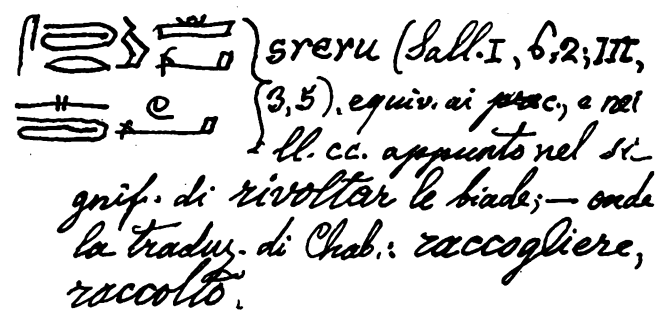 sreru (Sall. I, 6,2; III,
3,5), equiv. ai prec., e nei
ll. cc. appunto nel si-
gnif. di rivoltar le biade; — onde
la traduz. di Chab.: raccogliere,
raccolto.